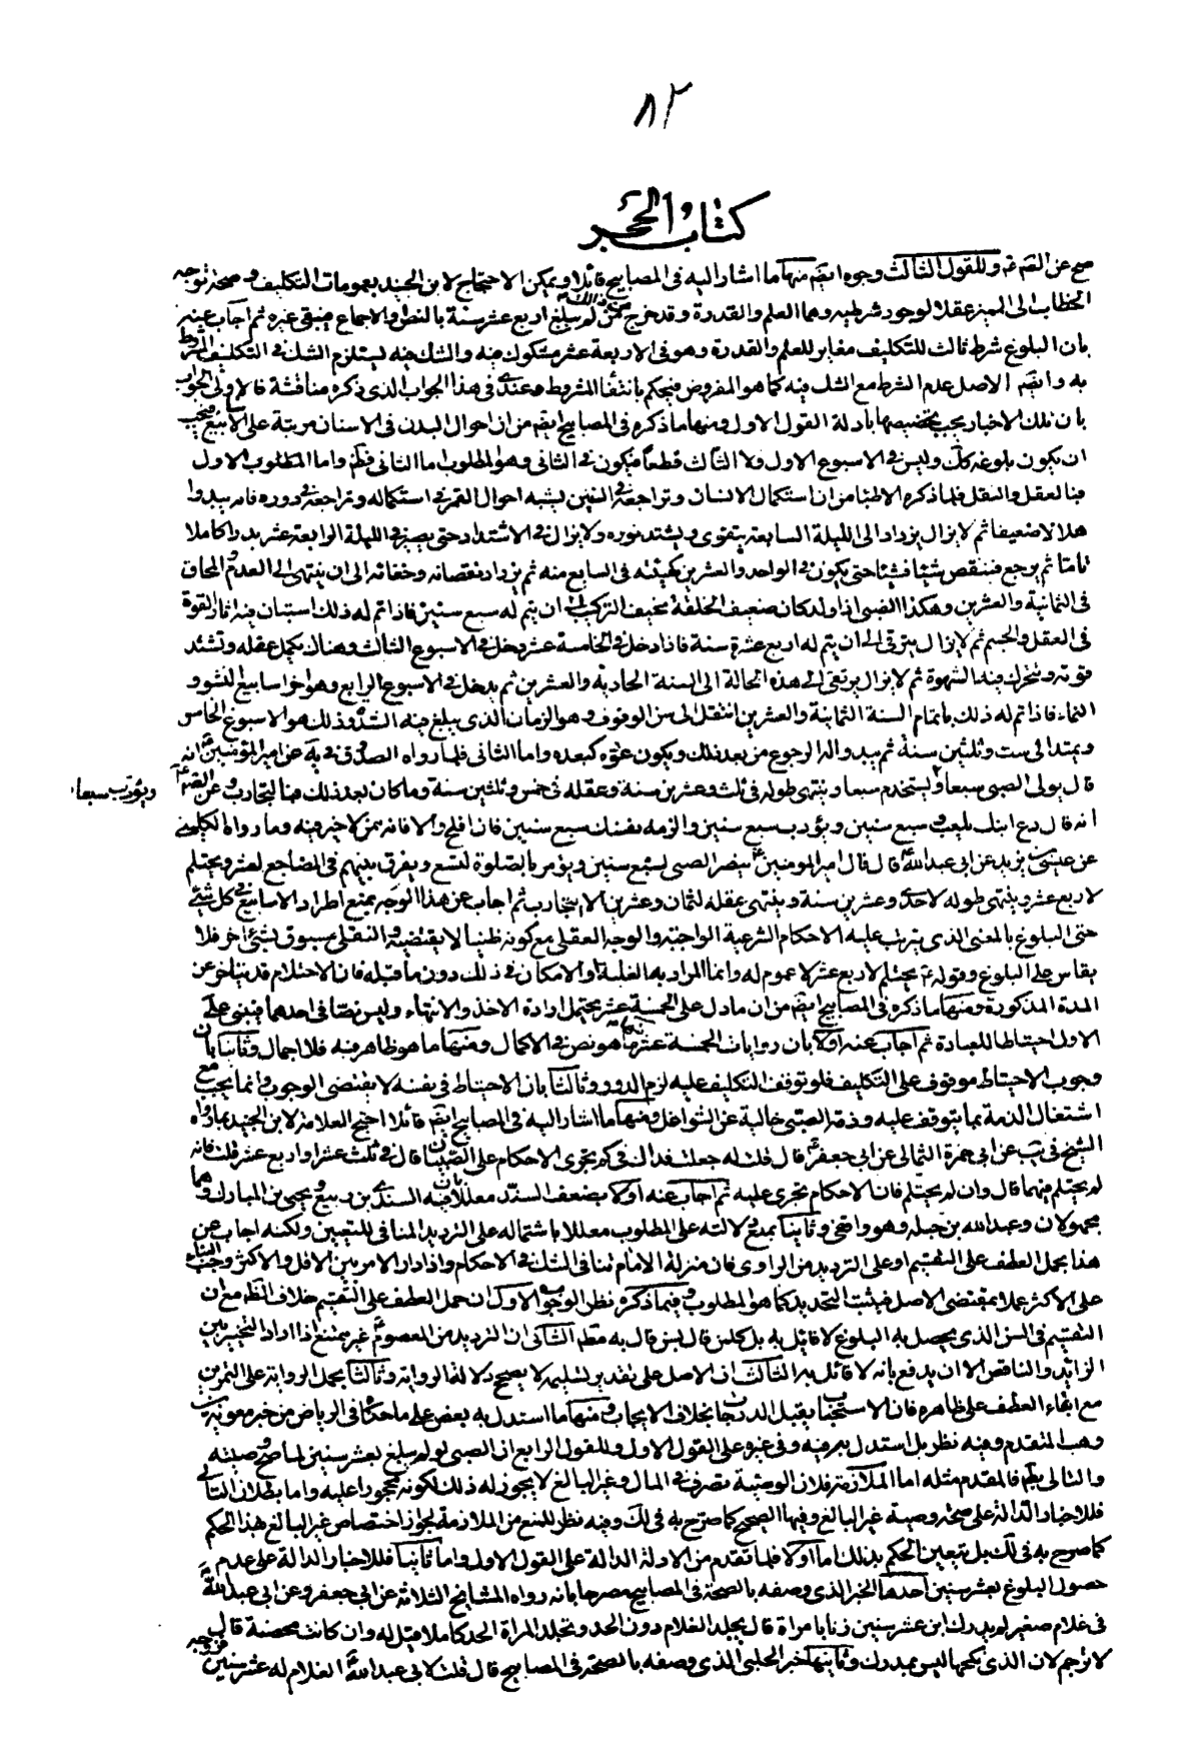 ٨٢
كتاب الحجر
صح عن القسم ثم وللقول الثالث وجوه ايضم منها ما اشار اليه فى المصابيح قائلا ويمكن الاحتجاج لابن الجنيد بعمومات التكليف و صحة توجه
الخطاب الى المميز عقلا لوجود شرطيه وهما العلم والقدرة وقد خرج من لم يبلغ اربع عشر سنة بالنص والاجماع فيبقى غيره ثم اجاب عنه
بان البلوغ شرط ثالث للتكليف مغاير للعلم والقدرة وهو فى الاربعة عشر مشكوك فيه والشك فيه يستلزم الشك فى التكليف المشروط
به وايضم الاصل عدم الشرط مع الشك فيه كما هو المفروض فيحكم بانتفاء المشروط وعندى فى هذا الجواب الذى ذكره مناقشة فالاولى الجواب
بان تلك الاخبار يجب تخصيصها بادلة القول الاول ومنها ما ذكره فى المصابيح ايضم من ان احوال البدن فى الاسنان مرتبة على الاسابيع فيجب
ان يكون بلوغه كك وليس فى الاسبوع الاول ولا الثالث قطعا فيكون فى الثانى وهو المطلوب اما الثانى فظم واما المطلوب الاول
فبالعقل والنقل فلما ذكره الاطباء من ان استكمال الانسان وتراجعه فى السنين يشبه احوال القمر فى استكماله وتراجعه فى دوره فانه يبدوا
هلالا ضعيفا ثم لا يزال يزداد الى الليلة السابعة يتقوى ويشتد نوره ولا يزال فى الاشتداد حتى يصير فى الليلة الرابعة عشر بدرا كاملا
تاما ثم يرجع فينقص شيئا فشيئا حتى يكون فى الواحد والعشرين كهيئته فى السابع منه ثم يزداد نقصانه وخفائه الى ان ينتهى الى العدم والمحاق
فى الثمانية والعشرين وهكذا الصبى اذا ولد كان ضعيف الخلقة نحيف التركيب الى ان يتم له سبع سنين فاذا تم له ذلك استبان فيه اثار القوة
فى العقل والجسم ثم لا يزال يترقى الى ان يتم له اربع عشرة سنة فاذا دخل فى الخامسة عشر دخل فى الاسبوع الثالث وهناك يكمل عقله وتشتد
قوته وتتحرك فيه الشهوة ثم لا يزال يرتقى الى هذه الحالة الى السنة الحادية والعشرين ثم يدخل فى الاسبوع الرابع وهو اخر اسابيع النشوو
النماء فاذا تم له ذلك باتمام السنة الثمانية والعشرين انتقل الى سن الوقوف وهو الزمان الذى يبلغ فيه الشدة وذلك هو الاسبوع الخامس
ويمتد الى ست وثلثين سنة ثم يبدوا له الرجوع من بعد ذلك ويكون كبعده واما الثانى فلما رواه الصدوق فى يه عن امير المؤمنين انه
قال يربى الصبى سبعا ويستخدم سبعا وينتهى طوله فى ثلث وعشرين سنة وعقله فى خمس وثلثين سنة وما كان بعد ذلك فبالتجارب وعن الصم
ويؤدب سبعا
انه قال دع ابنك يلعب سبع سنين ويؤدب سبع سنين والزمه نفسك سبع سنين فان افلح والا فانه ممن لا خير فيه وما رواه الكلينى
عن عيسى بن يزيد عن ابى عبد الله قال قال امير المومنين يثغر الصبى لسبع سنين ويؤمر بالصلوة لتسع ويفرق بينهم فى المضاجع لعشر ويحتلم
لاربع عشر وينتهى طوله لاحدى وعشرين سنة وينتهى عقله لثمان وعشرين الا التجارب ثم اجاب عن هذا الوجه بمنع اطراد الاسابيع فى كل شئ
حتى البلوغ بالمعنى الذى يترتب عليه الاحكام الشرعية الواجبة والوجه العقلى مع كونه ظنيا لا يقتضيه والنقلى مسوق لشئ اخر فلا
يقاس على البلوغ وقوله يحتلم لاربع عشر لا عموم له وانما المراد به الغلبة او الامكان فى ذلك دون ما قبله فان الاحتلام قد يتاخر عن
المدة المذكورة ومنها ما ذكره فى المصابيح ايضم من ان ما دل على الخمسة عشر يحتمل ارادة الاخذ والانتهاء وليس نصا فى احدهما فيبنى على
الاول احتياطا للعبادة ثم اجاب عنه اولا بان روايات الخمسة عشر منها ما هو نص فى الاكمال ومنها ما هو ظاهر فيه فلا اجمال وثانيا بان
وجوب الاحتياط موقوف على التكليف فلو توقف التكليف عليه لزم الدور وثالثا بان الاحتياط فى نفسه لا يقتضى الوجوب وانما يجب مع
اشتغال الذمة بما يتوقف عليه وذمة الصبى خالية عن الشواغل ومنها ما اشار اليه فى المصابيح ايضم قائلا احتج العلامة لابن الجنيد بما رواه
الشيخ فى يب عن ابى حمزة الثمالى عن ابى جعفر قال قلت له جعلت فداك فى كم تجرى الاحكام على الصبيان قال فى ثلث عشر او اربع عشر قلت فانه
لم يحتلم فيها قال وان لم يحتلم فان الاحكام تجرى عليه ثم اجاب عنه اولا بضعف السند معللا بان فيه السندى بن ربيع ويحيى بن المبارك وهما
مجهولان وعبد الله بن جبلة وهو واقفى وثانيا بمنع دلالته على المطلوب معللا باشتماله على الترديد المنافى للتعيين ولكنه اجاب عن
هذا بحمل العطف على التقسيم او على الترديد من الراوى فان منزلة الامام تنافى الشك فى الاحكام واذا دار الامر بين الاقل والاكثر وجب البناء
على الاكثر عملا بمقتضى الاصل فيثبت التحديد كما هو المطلوب وفيما ذكره نظر الوجوه الاول ان حمل العطف على التقسيم خلاف الظم مع ان
التقسيم فى السن الذى يحصل به البلوغ لا قائل به بل كل من قال بسن قال به مطم الثانى ان الترديد من المعصوم غير ممتنع اذا اراد التخيير بين
الزايد والناقص الا ان يدفع بانه لا قائل به الثالث ان الاصل على تقدير تسليمه لا يصحح دلالة الرواية وثالثا بحمل الرواية على التمرين
مع ابقاء العطف على ظاهره فان الاستحباب يقبل الدرجات بخلاف الايجاب ومنها ما استدل به بعض على ما حكاه فى الرياض من خبر معوية بن
وهب المتقدم وفيه نظر بل استدل به فيه وفى غيره على القول الاول وللقول الرابع ان الصبى لو لم يبلغ بعشر سنين لما صح وصيته
والتالى بطم فالمقدم مثله اما الملازمة فلان الوصية تصرف فى المال وغير البالغ لا يجوز له ذلك لكونه محجورا عليه واما بطلان التالى
فللاخبار الدالة على صحة وصية غير البالغ وفيها الصحيح كما صرح به فى لك وفيه نظر للمنع من الملازمة لجواز اختصاص غير البالغ هذا الحكم
كما صرح به فى لك بل يتعين الحكم بذلك اما اولا فلما تقدم من الادلة الدالة على القول الاول واما ثانيا فللاخبار الدالة على عدم
حصول البلوغ بعشر سنين احدها الخبر الذى وصفه بالصحة فى المصابيح مصرحا بانه رواه المشايخ الثلاثة عن ابى جعفر وعن ابى عبد الله
فى غلام صغير لم يدرك ابن عشر سنين زنا بامراة قال يجلد الغلام دون الحد وتجلد المراة الحد كاملا قيل له وان كانت محصنة قال
لا ترجم لان الذى نكحها ليس بمدرك وثانيها خبر الحلبى الذى وصفه بالصحة فى المصابيح قال قلت لابى عبد الله الغلام له عشر سنين فزوجه